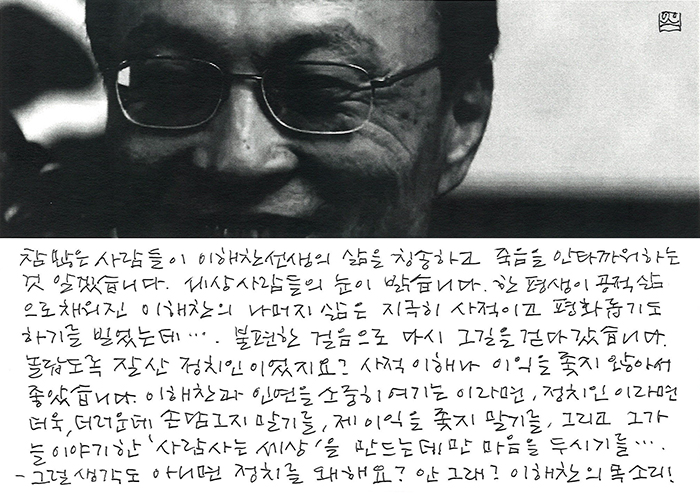 참 많은 사람들이 이해찬선생의 삶을 칭송하고 죽음을 안타까워하는
것 알겠습니다. 세상사람들의 눈이 밝습니다. 한 평생이 공적 삶
으로 채워진 이해찬의 나머지 삶은 지극히 사적이고 평화롭기도
하기를 빌었는데…. 불편한 걸음으로 다시 그길을 걷다 갔습니다.
놀랍도록 잘산 정치인이었지요? 사적 이해나 이익을 좇지 않아서
좋았습니다. 이해찬과 인연을 소중히 여기는 이라면, 정치인이라면
더욱, 더러운데 손담그지 말기를, 제 이익을 좇지 말기를, 그리고 그가
늘 이야기한 '사람사는 세상'을 만드는데만 마음을 두시기를….
- 그럴생각도 아니면 정치를 왜해요? 안 그래? 이해찬의 목소리!